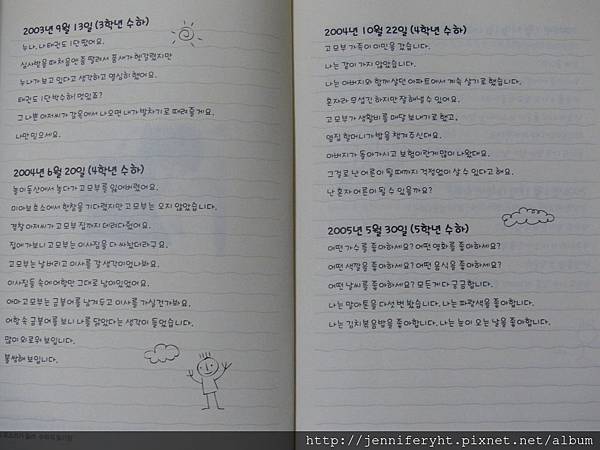 2003년 9월 13일 (3학년 수하)
누나, 나 태권도 1단 땄어요.
심사받을 때 처음엔 좀 떨려서 품새가 헷갈렸지만
누나가 보고 있다고 생각하고 열심히 했어요.
태권도 1단 박수하! 멋있죠?
그 나쁜 아저씨가 감옥에서 나오면 내가 발차기로 때려줄게요.
나만 믿으세요.
2004년 6월 20일 (4학년 수하)
놀이동산에서 놀다가 고모부를 잃어버렸어요.
미아보호소에서 한참을 기다렸지만 고모부는 오지 않았습니다.
경찰 아저씨가 고모부 집까지 데려다줬어요.
집에 가보니 고모부는 이사짐을 다 싸놨더라구요.
고모부는 날 버리고 이사를 갈 생각이었나봐요.
이사짐들 속에 어항만 그대로 남아있었어요.
아마 고모부는 금붕어를 남겨두고 이사를 가실건가봐요.
어항 속 금붕어를 보니 나를 닮았다는 생각이 들었습니다.
많이 외로워 보입니다.
불쌍해 보입니다.
2004년 10월 22일 (4학년 수하)
고모부 가족이 이민을 갔습니다.
나는 같이 가지 않았습니다.
나는 아버지와 함께 살던 아파트에서 계속 살기로 했습니다.
혼자라 무섭긴 하지만 잘 해낼 수 있어요.
고모부가 생활비를 매달 보내기로 했고,
옆집 할머니가 밥을 챙겨주신대요.
아버지가 돌아가시고 보험이란게 많이 나왔대요.
그걸로 난 어른이 될 때까지 걱정없이 살 수 있다고 해요.
난 혼자 어른이 될 수 있을까요?
2005년 5월 30일 (5학년 수하)
어떤 가수를 좋아하세요? 어떤 영화를 좋아하세요?
어떤 색깔을 좋아하세요? 어떤 음식을 좋아하세요?
어떤 날씨를 좋아하세요? 모든게 다 궁금합니다.
나는 말아톤을 다섯 번 봤습니다. 나는 파란색을 좋아합니다.
나는 김치볶음밥을 좋아합니다. 나는 눈이 오는 날을 좋아합니다.
http://jenniferyht.pixnet.net/album